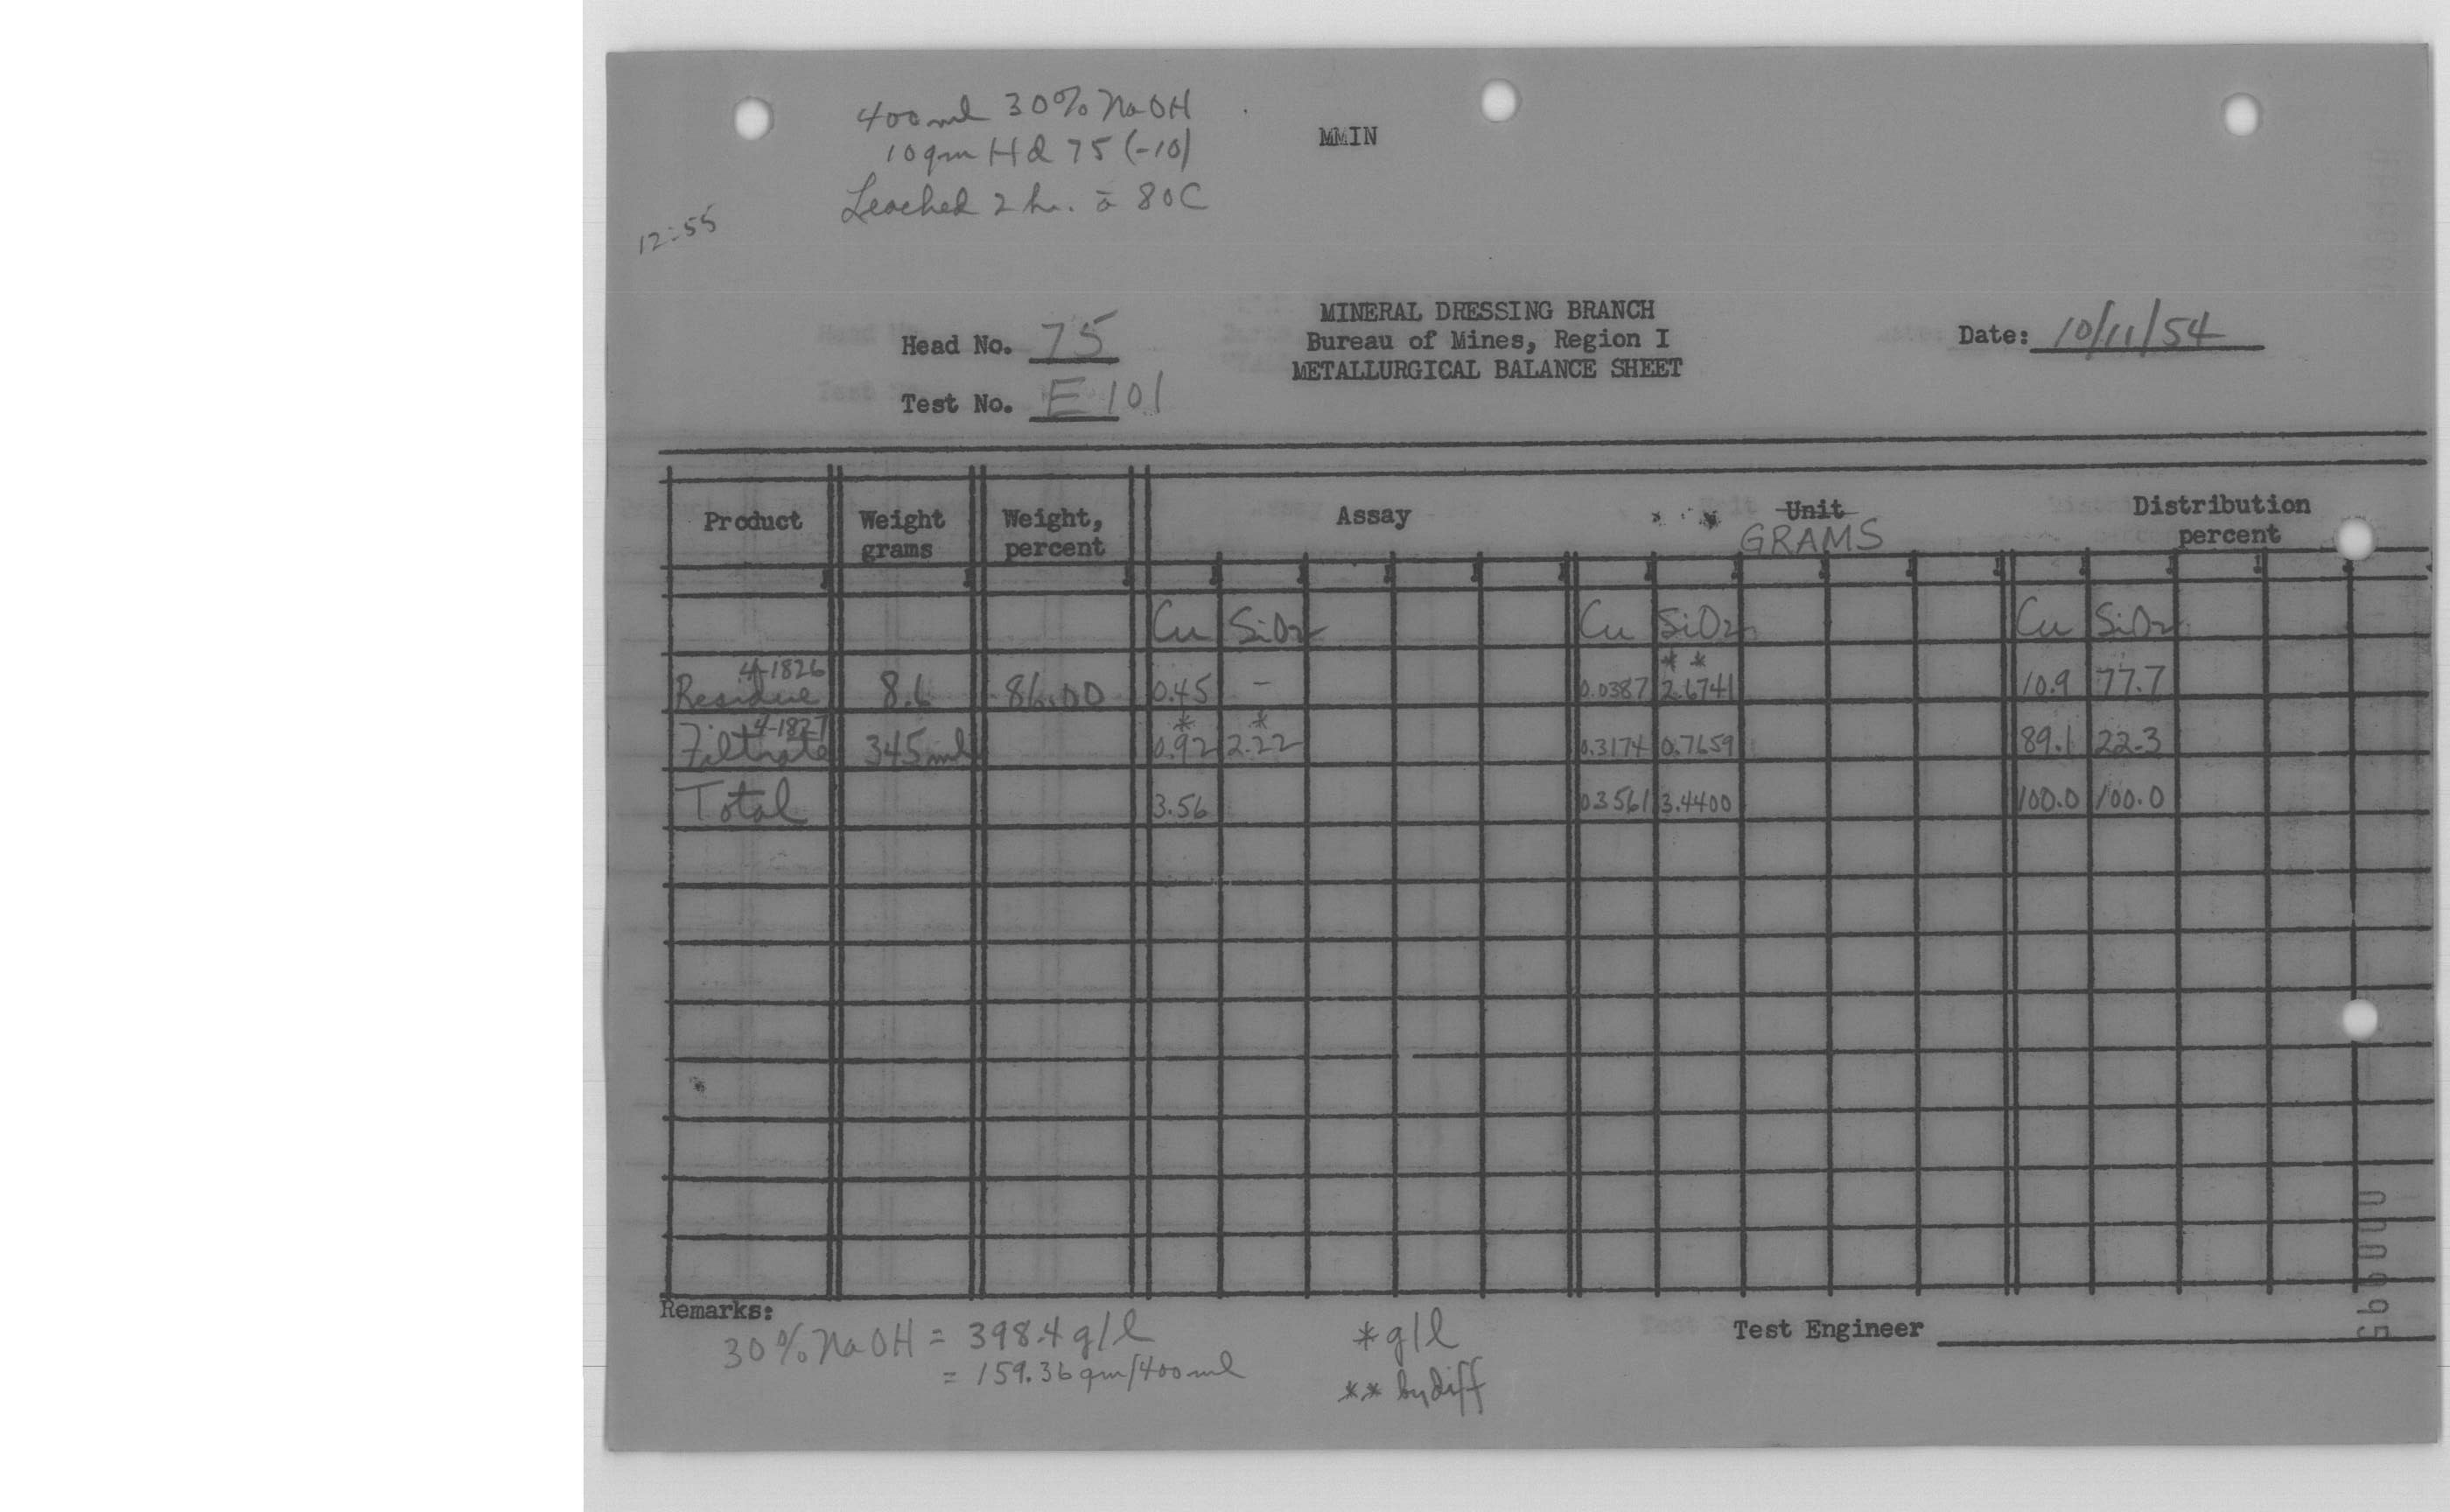 400 ml 30% NaOH
10 gm Hd 75 (-10)
Leached 2 hr. @ 80C
12:55
MMIN
MINERAL DRESSING BRANCH
Bureau of Mines, Region I
METALLURGICAL BALANCE SHEET
Head No. 75
Test No. E 101
Date: 10/11/54
Product Weight grams Weight, percent Assay Unit GRAMS Distribution percent
Cu SiO2 Cu SiO2 Cu SiO2
Residue 4-1826 8.6 86.00 0.45 - 0.0387 ** 2.6741 10.9 77.7
Filtrate 4-1827 345 ml * 0.92 * 2.22 0.3174 0.7659 89.1 22.3
Total 3.56 0.3561 3.4400 100.0 100.0
Remarks:
30% NaOH = 398.4 g/l
= 159.36 gm/400 ml
* g/l
** by diff
Test Engineer